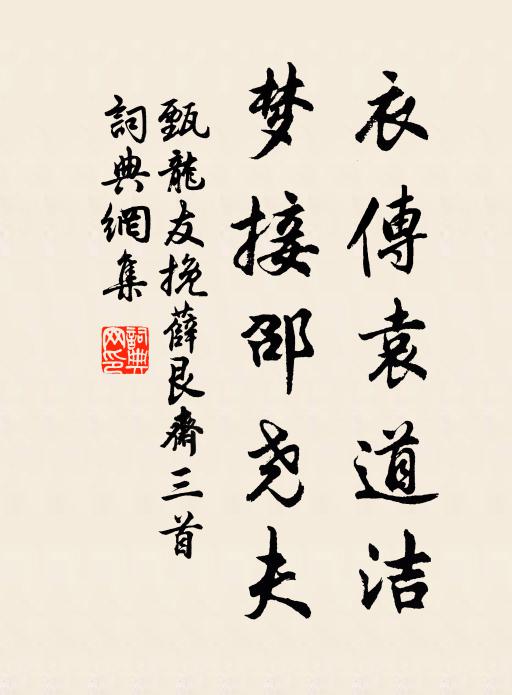 衣傳袁道洁
梦接邵尧夫
甄龍友挽薛艮齋三首
詞典網集
詞典網印